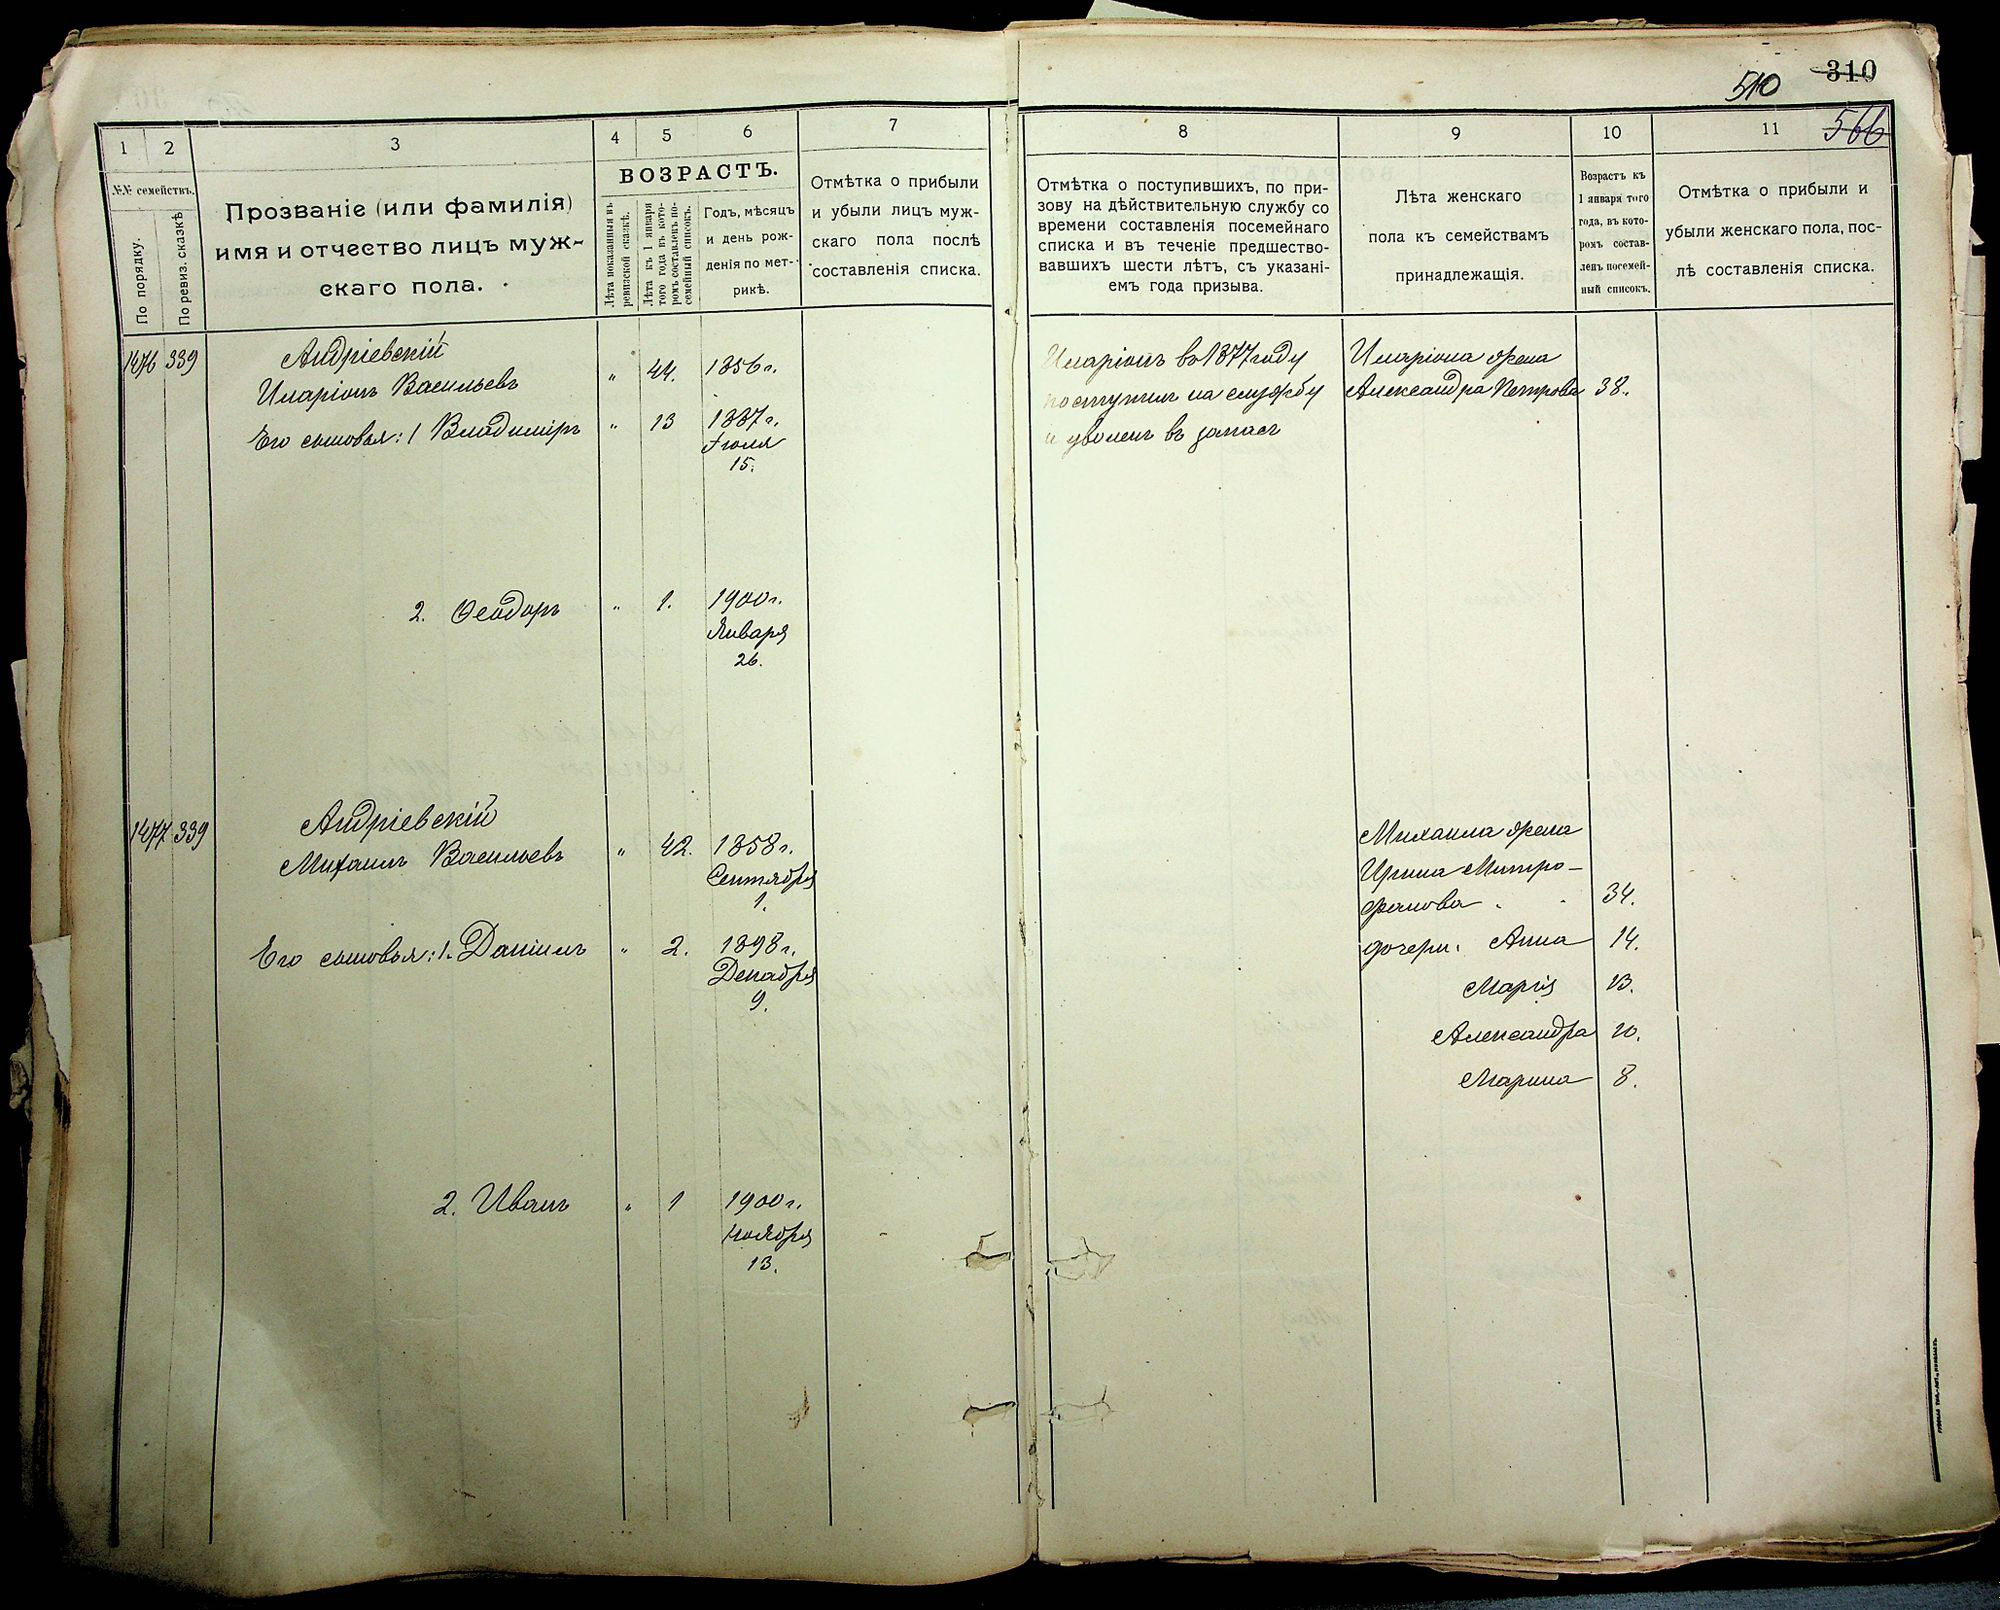 310
510
566
1
2
3
4
5
6
7
№№ семействъ.
По порядку.
По ревиз. сказкѣ
Прозваніе (или фамилія)
имя и отчество лицъ муж-
скаго пола.
ВОЗРАСТЪ.
Лѣта показанныя въ
ревизской сказкѣ.
Лѣта къ 1 января
того года въ кото-
ромъ составленъ по-
семейный списокъ.
Годъ, мѣсяцъ
и день рож-
денія по мет-
рикѣ.
Отмѣтка о прибыли
и убыли лицъ муж-
скаго пола послѣ
составленія списка.
8
9
10
11
Отмѣтка о поступившихъ, по при-
зову на дѣйствительную службу со
времени составленія посемейнаго
списка и въ теченіе предшество-
вавшихъ шести лѣтъ, съ указані-
емъ года призыва.
Лѣта женскаго
пола къ семействамъ
принадлежащія.
Возрастъ къ
1 января того
года, въ кото-
ромъ состав-
ленъ посемей-
ный списокъ.
Отмѣтка о прибыли и
убыли женскаго пола, пос-
лѣ составленія списка.
1476 339 Андріевскій
Иларіонъ Васильевъ " 44. 1856 г.
Его сыновья: 1 Владимiръ " 13 1887 г.
Іюля
15.
2. Ѳеодоръ " 1. 1900 г.
Января
26.
1477 339 Андріевскій
Михаилъ Васильевъ " 42. 1858 г.
Сентября
1.
Его сыновья: 1. Даніилъ " 2. 1898 г.
Декабря
9.
2. Иванъ " 1 1900 г.
Ноября
13.
Иларіонъ въ 1877 году
поступилъ на службу
и уволенъ въ запасъ
Иларіона жена
Александра Петрова 38.
Михаила жена
Ирина Митро-
фанова 34.
дочери: Анна 14.
Марія 13.
Александра 10.
Марина 8.